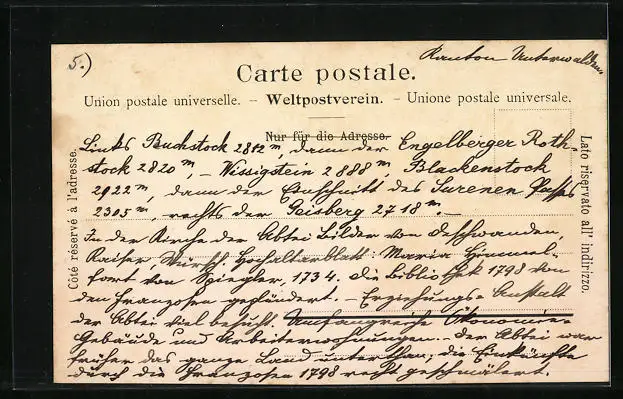 5.)
Kanton Unterwalden
Carte postale.
Union postale universelle. – Weltpostverein. – Unione postale universale.
Nur für die Adresse.
Côté réservé à l'adresse.
Lato riservato all' indirizzo.
Links Buchstock 2812 m, dann der Engelberger Roth-
stock 2820 m, – Wissigstein 2888 m, Blackenstock
2922 m, dann der Einschnitt des Surenen Passes
2305 m, rechts der Geisberg 2718 m. –
In der Kirche der Abtei Bilder von Deschwanden,
Kaiser, Würsch, Hochaltarblatt: Maria Himmel-
fart von Spiegler, 1734. Die Bibliothek 1798 von
den Franzosen geplündert. – Erziehungs-Anstalt
der Abtei viel besucht. Umfangreiche Ökonomie-
Gebäude und Arbeiterwohnungen. – Der Abtei war
früher das ganze Land unterthan; die Einkünfte
durch die Franzosen 1798 recht geschmälert.